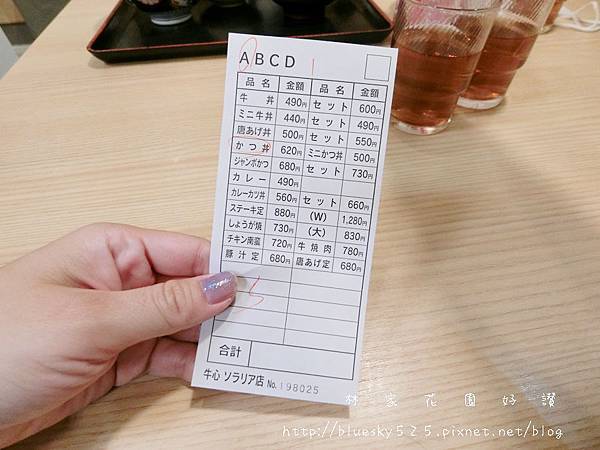 ABCD 1
品名 金額 品名 金額
牛丼 490円 セット 600円
ミニ牛丼 440円 セット 490円
唐あげ丼 500円 セット 550円
かつ丼 620円 ミニかつ丼 500円
ジャンボかつ 680円 セット 730円
カレー 490円
カレーカツ丼 560円 セット 660円
ステーキ定 880円 (W) 1,280円
しょうが焼 730円 (大) 830円
チキン南蛮 720円 牛焼肉 780円
豚汁定 680円 唐あげ定 680円
合計
牛心 ソラリア店 No. 198025
林家花園好讚
http://bluesky525.pixnet.net/blog